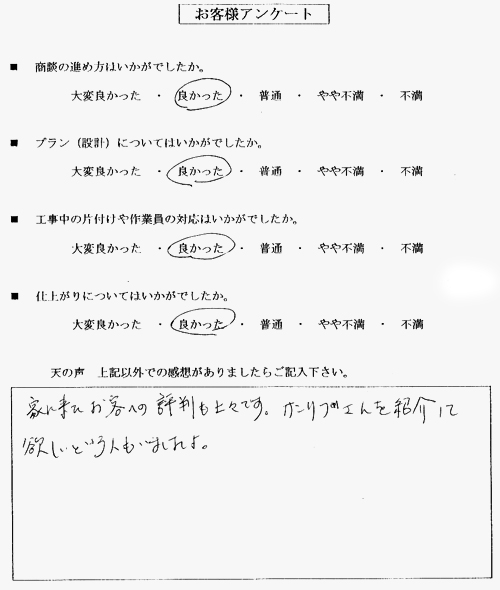 お客様アンケート
■ 商談の進め方はいかがでしたか。
大変良かった ・ 良かった ・ 普通 ・ やや不満 ・ 不満
■ プラン（設計）についてはいかがでしたか。
大変良かった ・ 良かった ・ 普通 ・ やや不満 ・ 不満
■ 工事中の片付けや作業員の対応はいかがでしたか。
大変良かった ・ 良かった ・ 普通 ・ やや不満 ・ 不満
■ 仕上がりについてはいかがでしたか。
大変良かった ・ 良かった ・ 普通 ・ やや不満 ・ 不満
天の声 上記以外での感想がありましたらご記入下さい。
家に来たお客への評判も上々です。 を紹介して
欲しいという人もいましたよ。